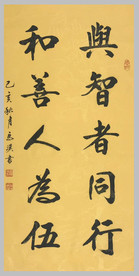 與智者同行
和善人為伍
己亥秋月志洪書